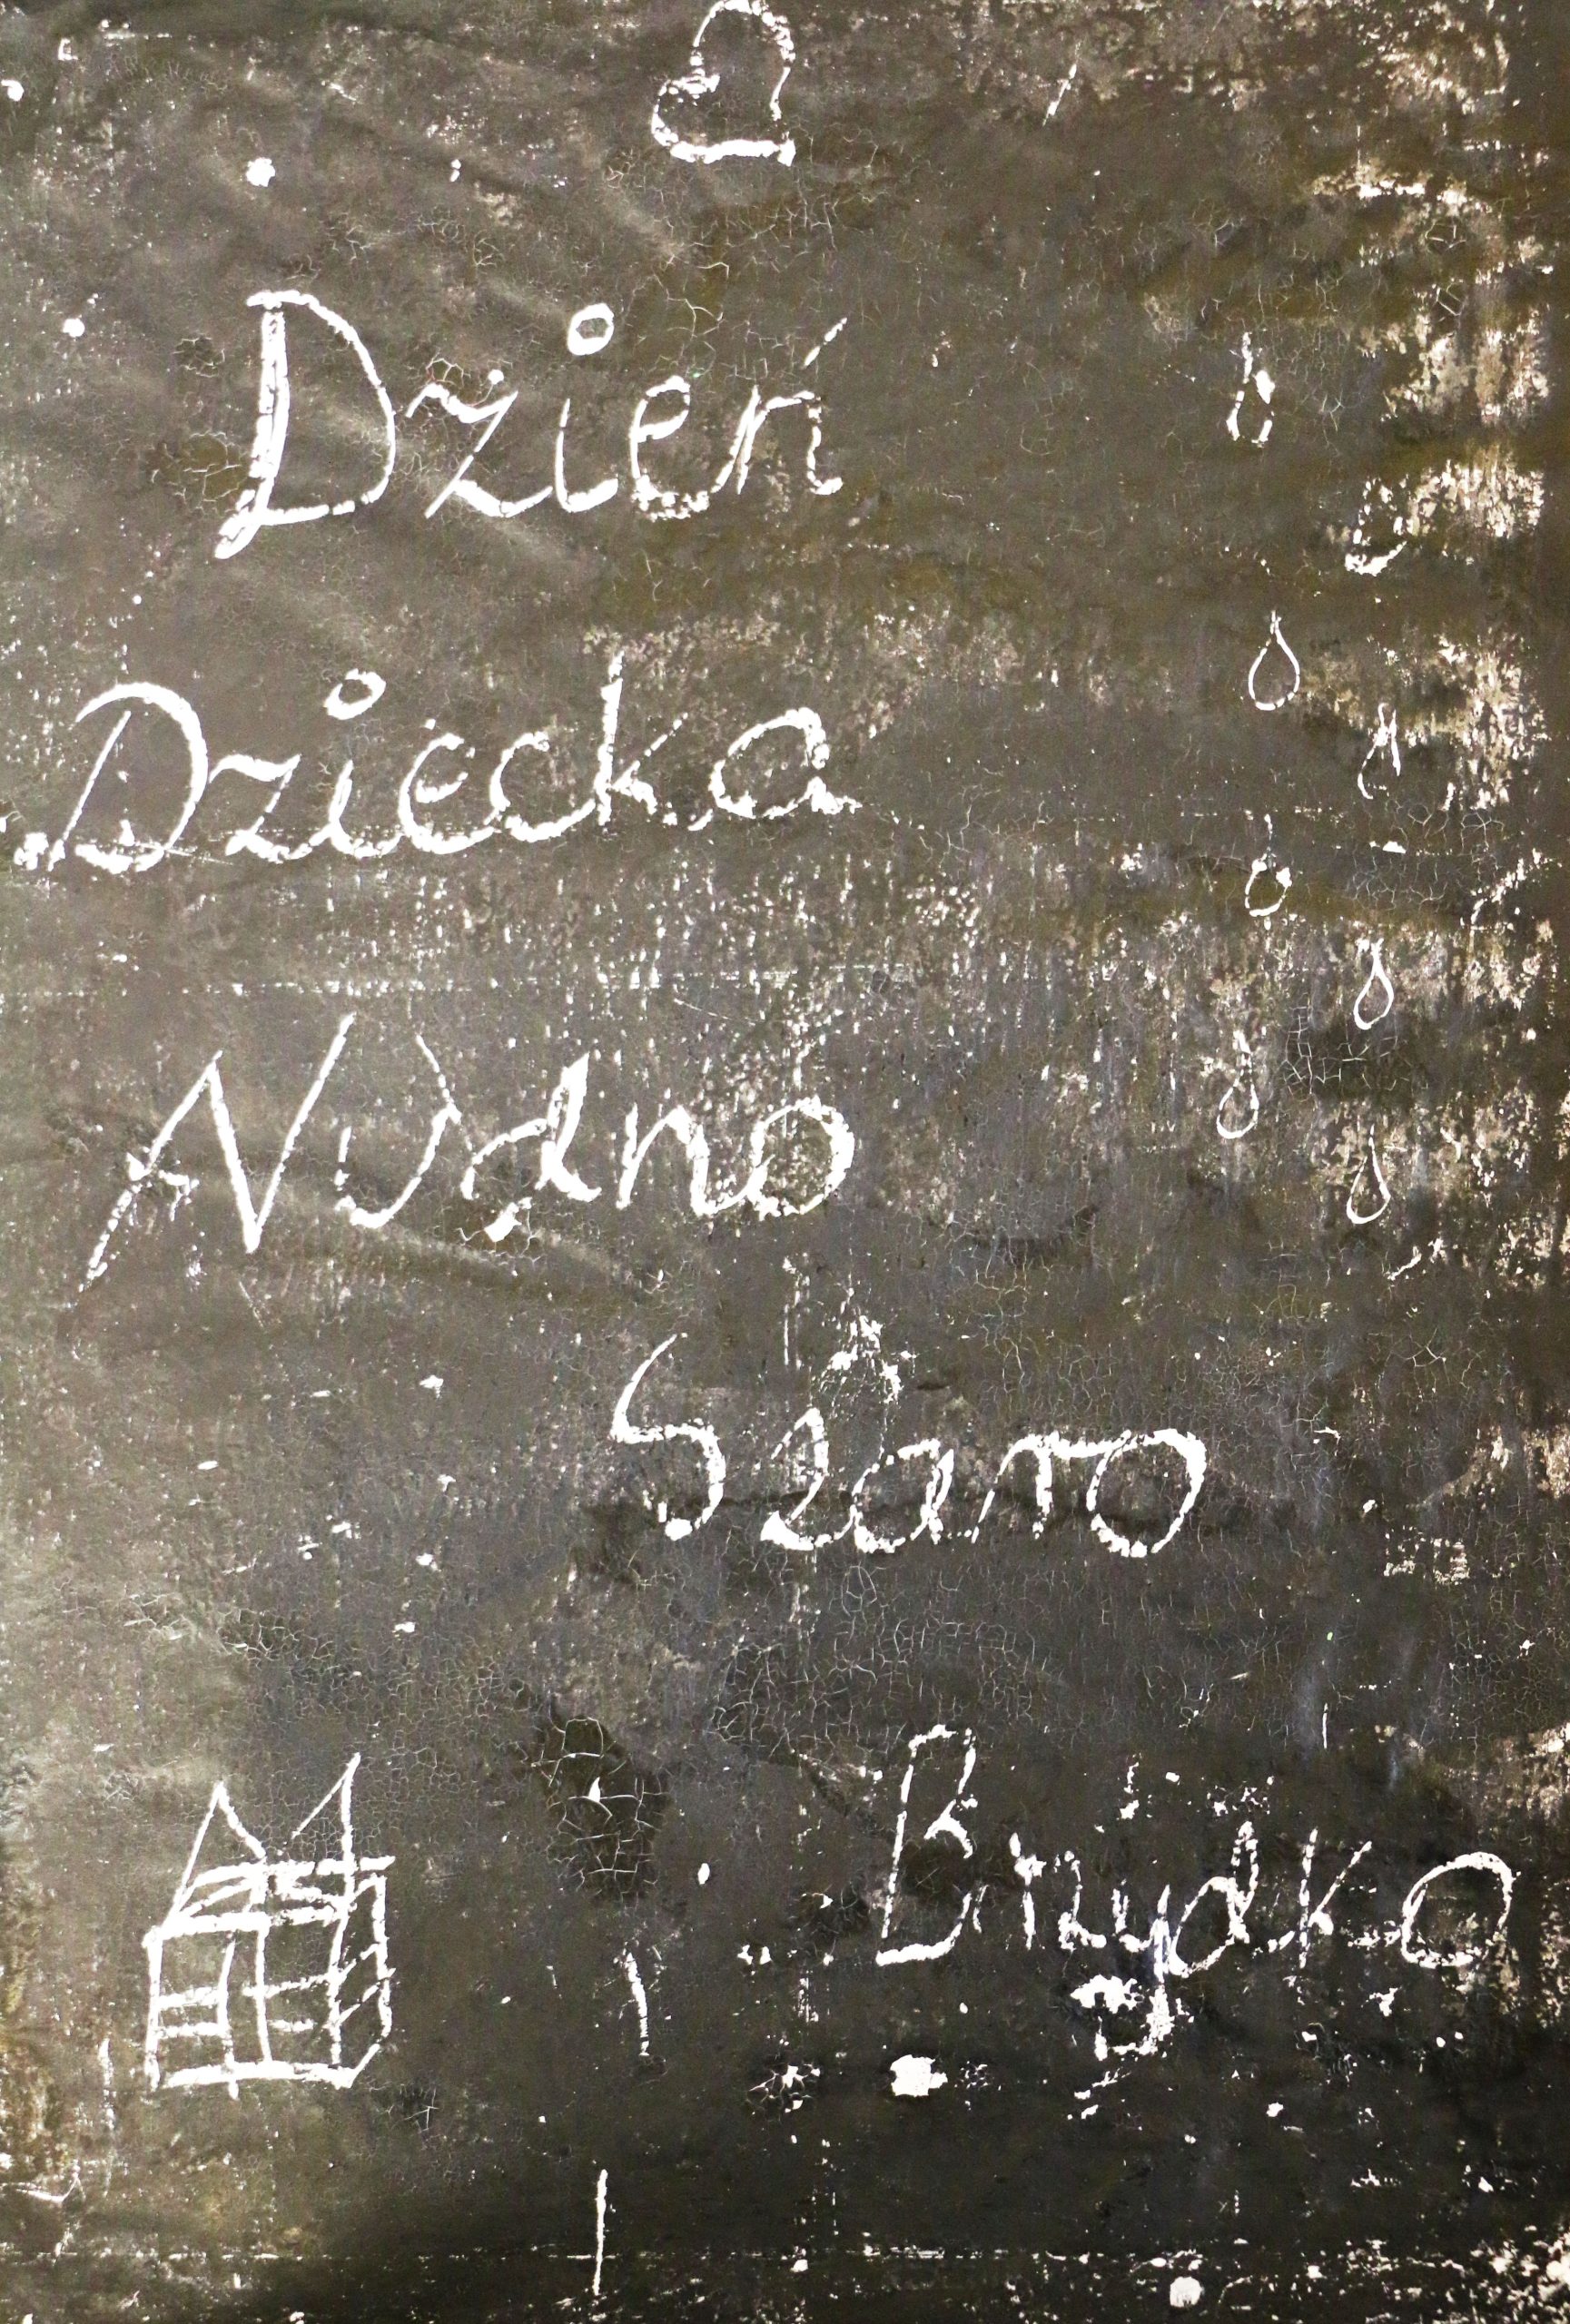 Dzień
Dziecka
Nudno
Szaro
Brzydko